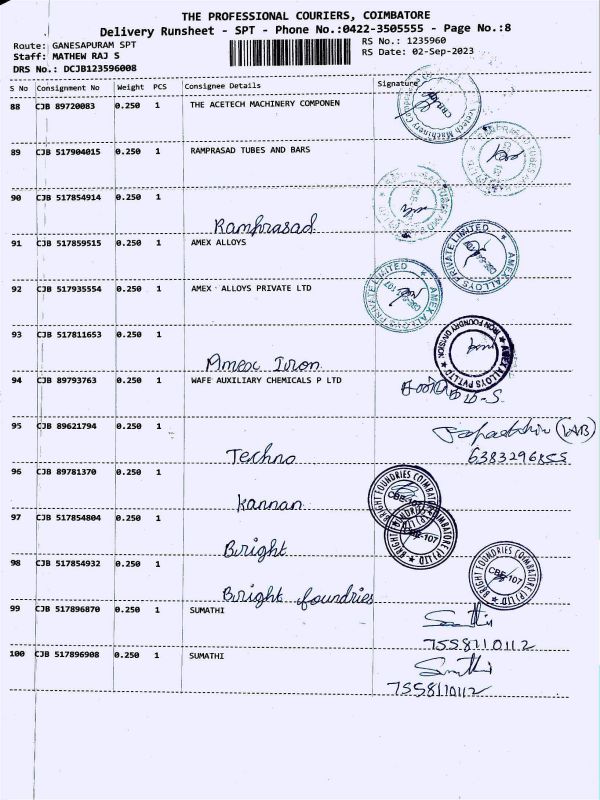 THE PROFESSIONAL COURIERS, COIMBATORE
Delivery Runsheet - SPT - Phone No.:0422-3505555 - Page No.:8
Route: GANESAPURAM SPT
RS No.: 1235960
Staff: MATHEW RAJ S
RS Date: 02-Sep-2023
DRS No.: DCJB123596008
S No Consignment No Weight PCS Consignee Details Signature
88 CJB 89720083 0.250 1 THE ACETECH MACHINERY COMPONEN
89 CJB 517904015 0.250 1 RAMPRASAD TUBES AND BARS
90 CJB 517854914 0.250 1
Ramprasad
91 CJB 517859515 0.250 1 AMEX ALLOYS
AMEX ALLOYS PRIVATE LIMITED
92 CJB 517935554 0.250 1 AMEX ALLOYS PRIVATE LTD
AMEX ALLOYS PRIVATE LIMITED
CBE-107
93 CJB 517811653 0.250 1
Amex Iron
AMEX ALLOYS PVT LTD
IRON FOUNDRY DIVISION
94 CJB 89793763 0.250 1 WAFE AUXILIARY CHEMICALS P LTD
95 CJB 89621794 0.250 1
Techno
(LAB)
96 CJB 89781370 0.250 1
Kannan
BRIGHT FOUNDRIES COIMBATORE (P) LTD
CBE-107
97 CJB 517854804 0.250 1
Bright
98 CJB 517854932 0.250 1
Bright foundries
BRIGHT FOUNDRIES COIMBATORE (P) LTD
CBE-107
99 CJB 517896870 0.250 1 SUMATHI
7558110112
100 CJB 517896908 0.250 1 SUMATHI
7558110112